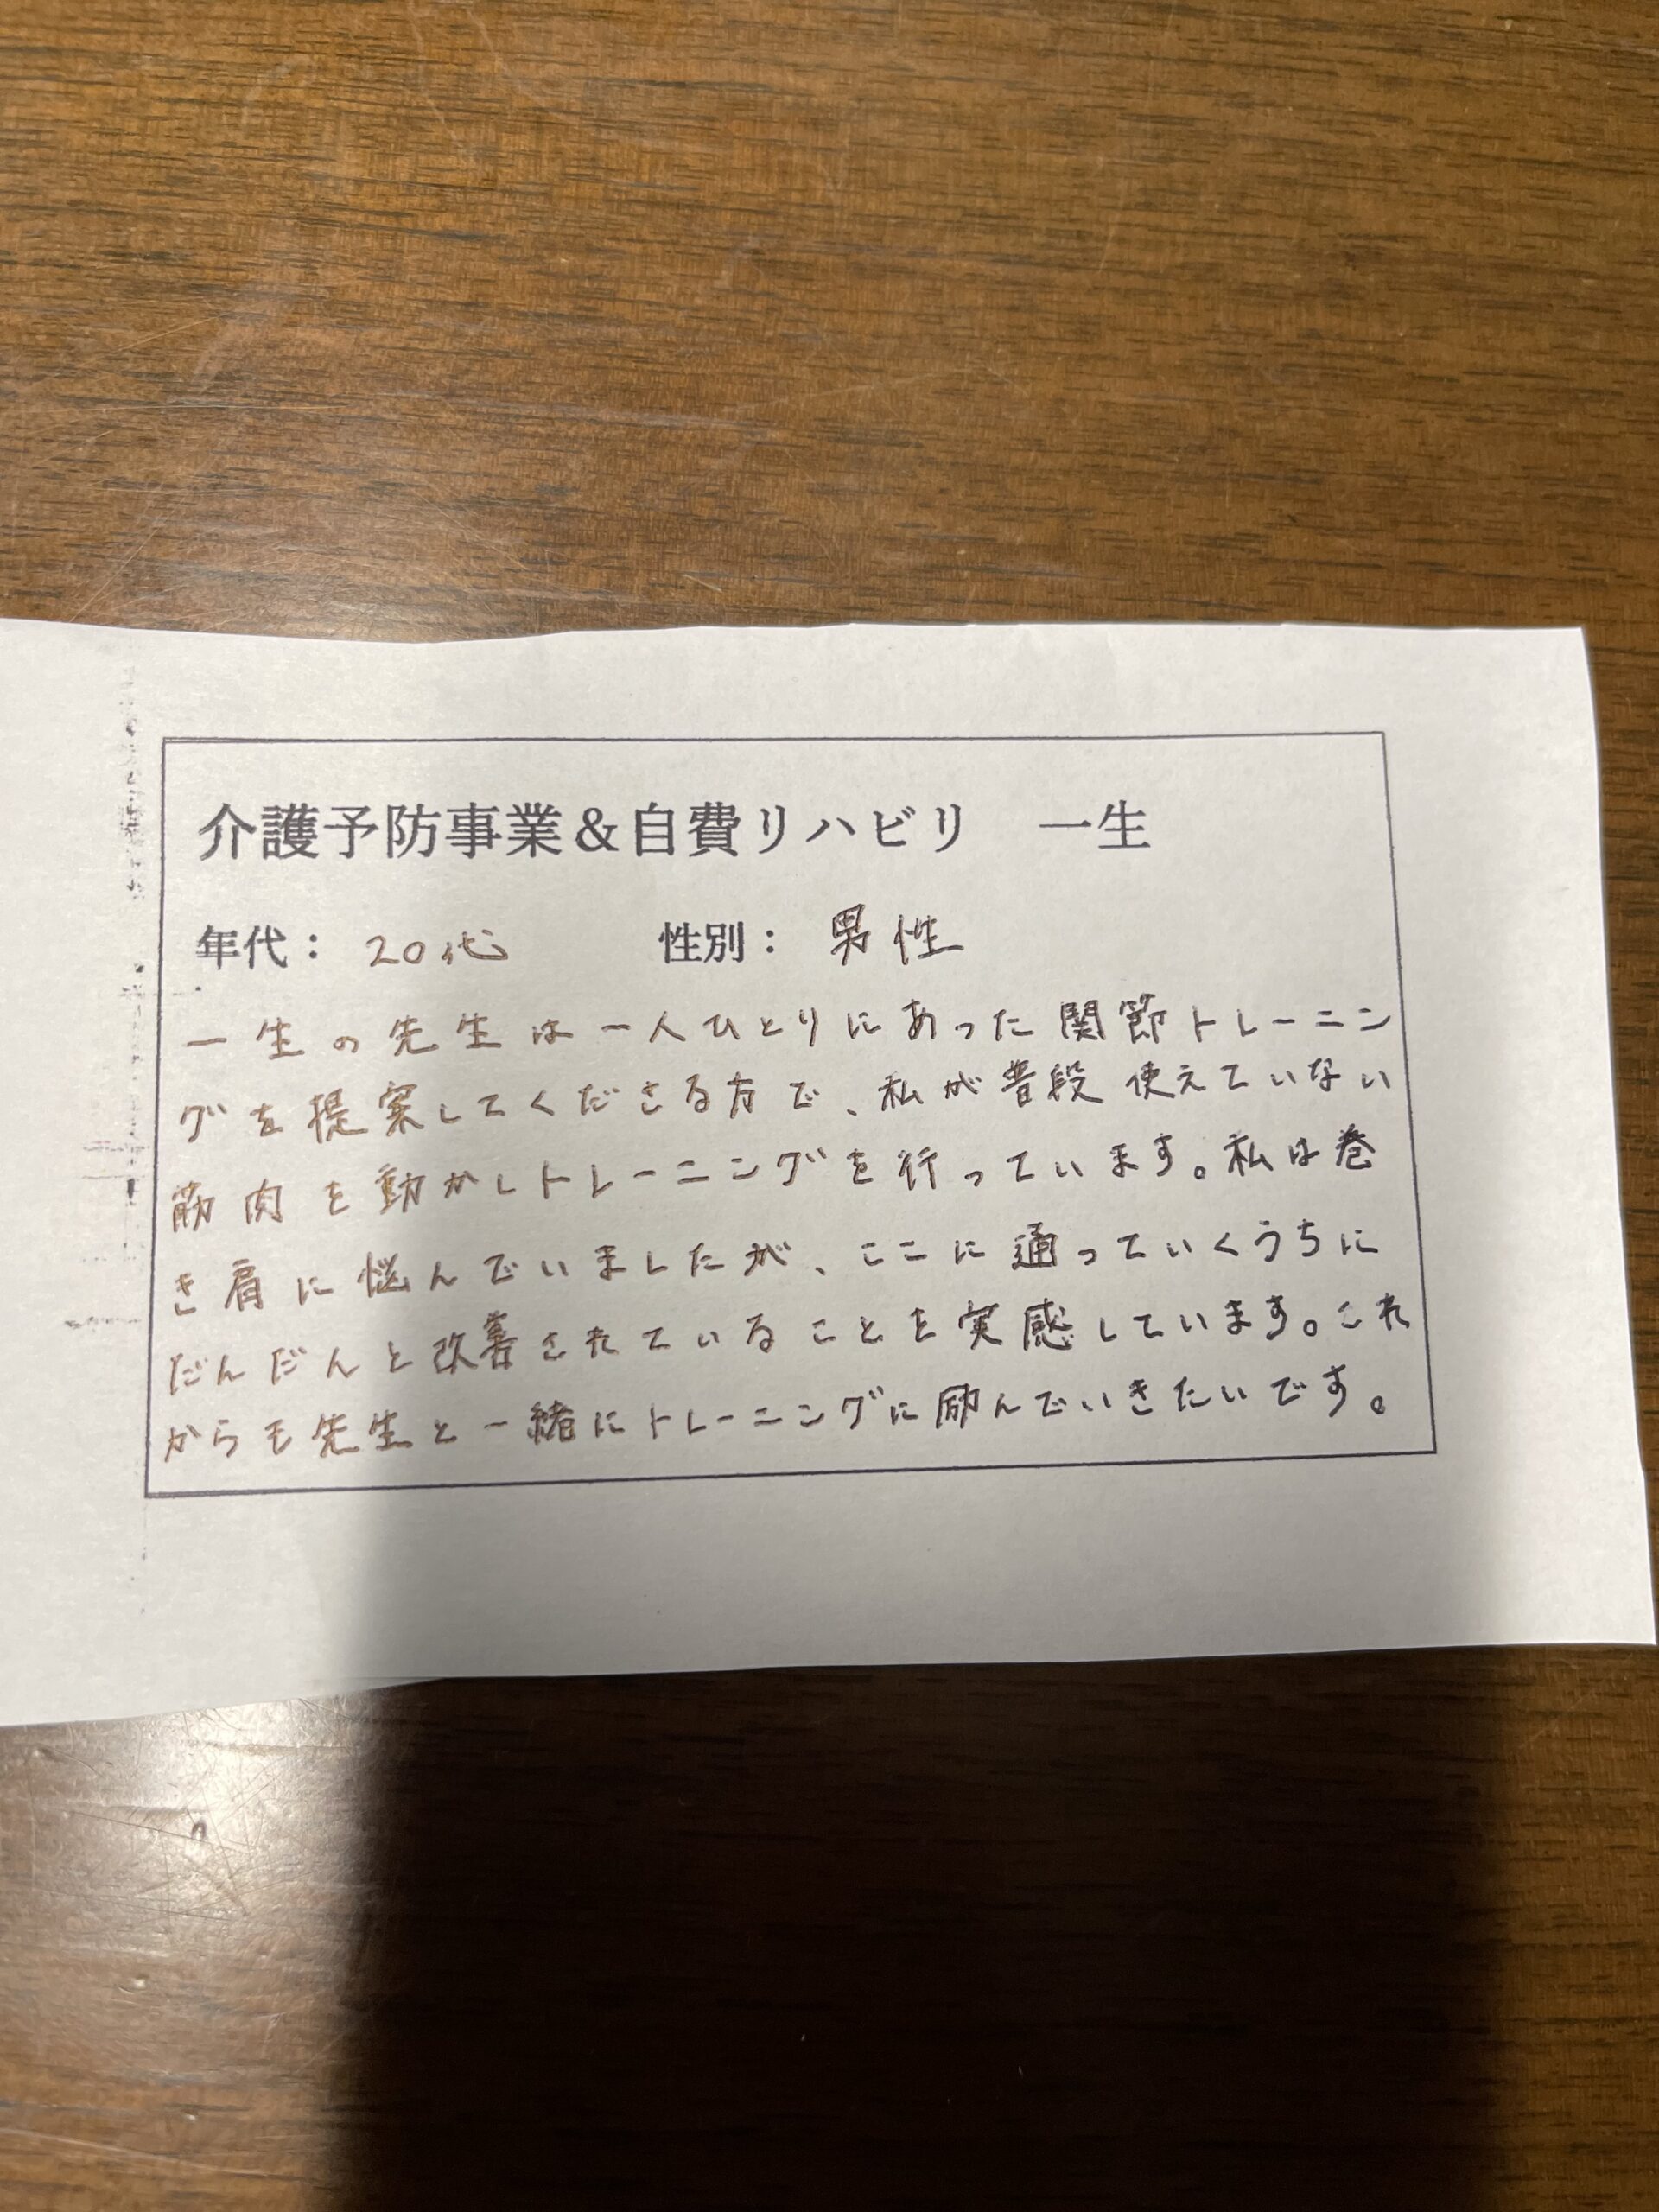 介護予防事業＆自費リハビリ　一生
年代： 20代　性別： 男性
一生の先生は一人ひとりにあった関節トレーニン
グを提案してくださる方で、私が普段使えていない
筋肉を動かしトレーニングを行っています。私は巻
き肩に悩んでいましたが、ここに通っていくうちに
だんだんと改善されていることを実感しています。これ
からも先生と一緒にトレーニングに励んでいきたいです。